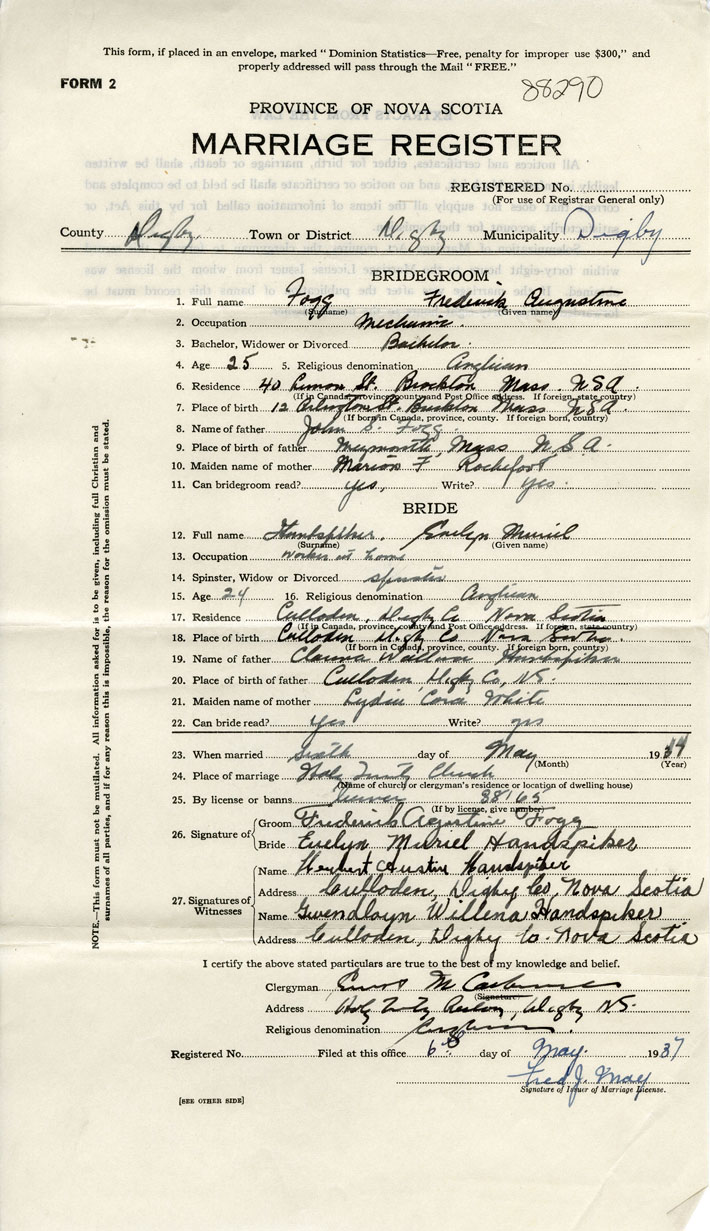 This form, if placed in an envelope, marked "Dominion Statistics—Free, penalty for improper use $300," and
properly addressed will pass through the Mail "FREE."
FORM 2
88290
PROVINCE OF NOVA SCOTIA
MARRIAGE REGISTER
REGISTERED No.
(For use of Registrar General only)
County Digby Town or District Digby Municipality Digby
BRIDEGROOM
1. Full name Fogg Frederick Augustine
(Surname) (Given name)
2. Occupation Mechanic
3. Bachelor, Widower or Divorced Bachelor
4. Age 25 5. Religious denomination Anglican
6. Residence 40 St. Brockton Mass
(If in Canada, province, county and Post Office address. If foreign, state country)
7. Place of birth 12 Arlington St. Brockton Mass
(If born in Canada, province, county. If foreign born, country)
8. Name of father John S. Fogg
9. Place of birth of father Weymouth, Mass
10. Maiden name of mother Marion F Rochefort
11. Can bridegroom read? yes, Write? yes.
BRIDE
12. Full name Handspiker, Evelyn Muriel
(Surname) (Given name)
13. Occupation worker at home
14. Spinster, Widow or Divorced spinster
15. Age 24 16. Religious denomination Anglican
17. Residence Culloden, Digby Co Nova Scotia
(If in Canada, province, county and Post Office address. If foreign, state country)
18. Place of birth Culloden Digby Co Nova Scotia
(If born in Canada, province, county. If foreign born, country)
19. Name of father Wallace Handspiker
20. Place of birth of father Culloden Digby Co, N.S.
21. Maiden name of mother Lydia Cora White
22. Can bride read? Yes Write? yes
23. When married Sixth day of May 19
(Month) (Year)
24. Place of marriage Holy Trinity Church
(Name of church or clergyman's residence or location of dwelling house)
25. By license or banns 88165
(If by license, give number)
26. Signature of
Groom Frederick Augustine Fogg
Bride Evelyn Muriel Handspiker
27. Signatures of Witnesses
Name Herbert Austin Handspiker
Address Culloden, Digby Co, Nova Scotia
Name Gwendloyn Willena Handspiker
Address Culloden, Digby Co. Nova Scotia
I certify the above stated particulars are true to the best of my knowledge and belief.
Clergyman
(Signature)
Address Holy Trinity Rectory, Digby N.S.
Religious denomination
Registered No. Filed at this office 6th day of May. 1937
Fred J. May
Signature of Issuer of Marriage License.
[SEE OTHER SIDE]
NOTE.—This form must not be mutilated. All information asked for is to be given, including full Christian and
surnames of all parties, and if for any reason this is impossible, the reason for the omission must be stated.